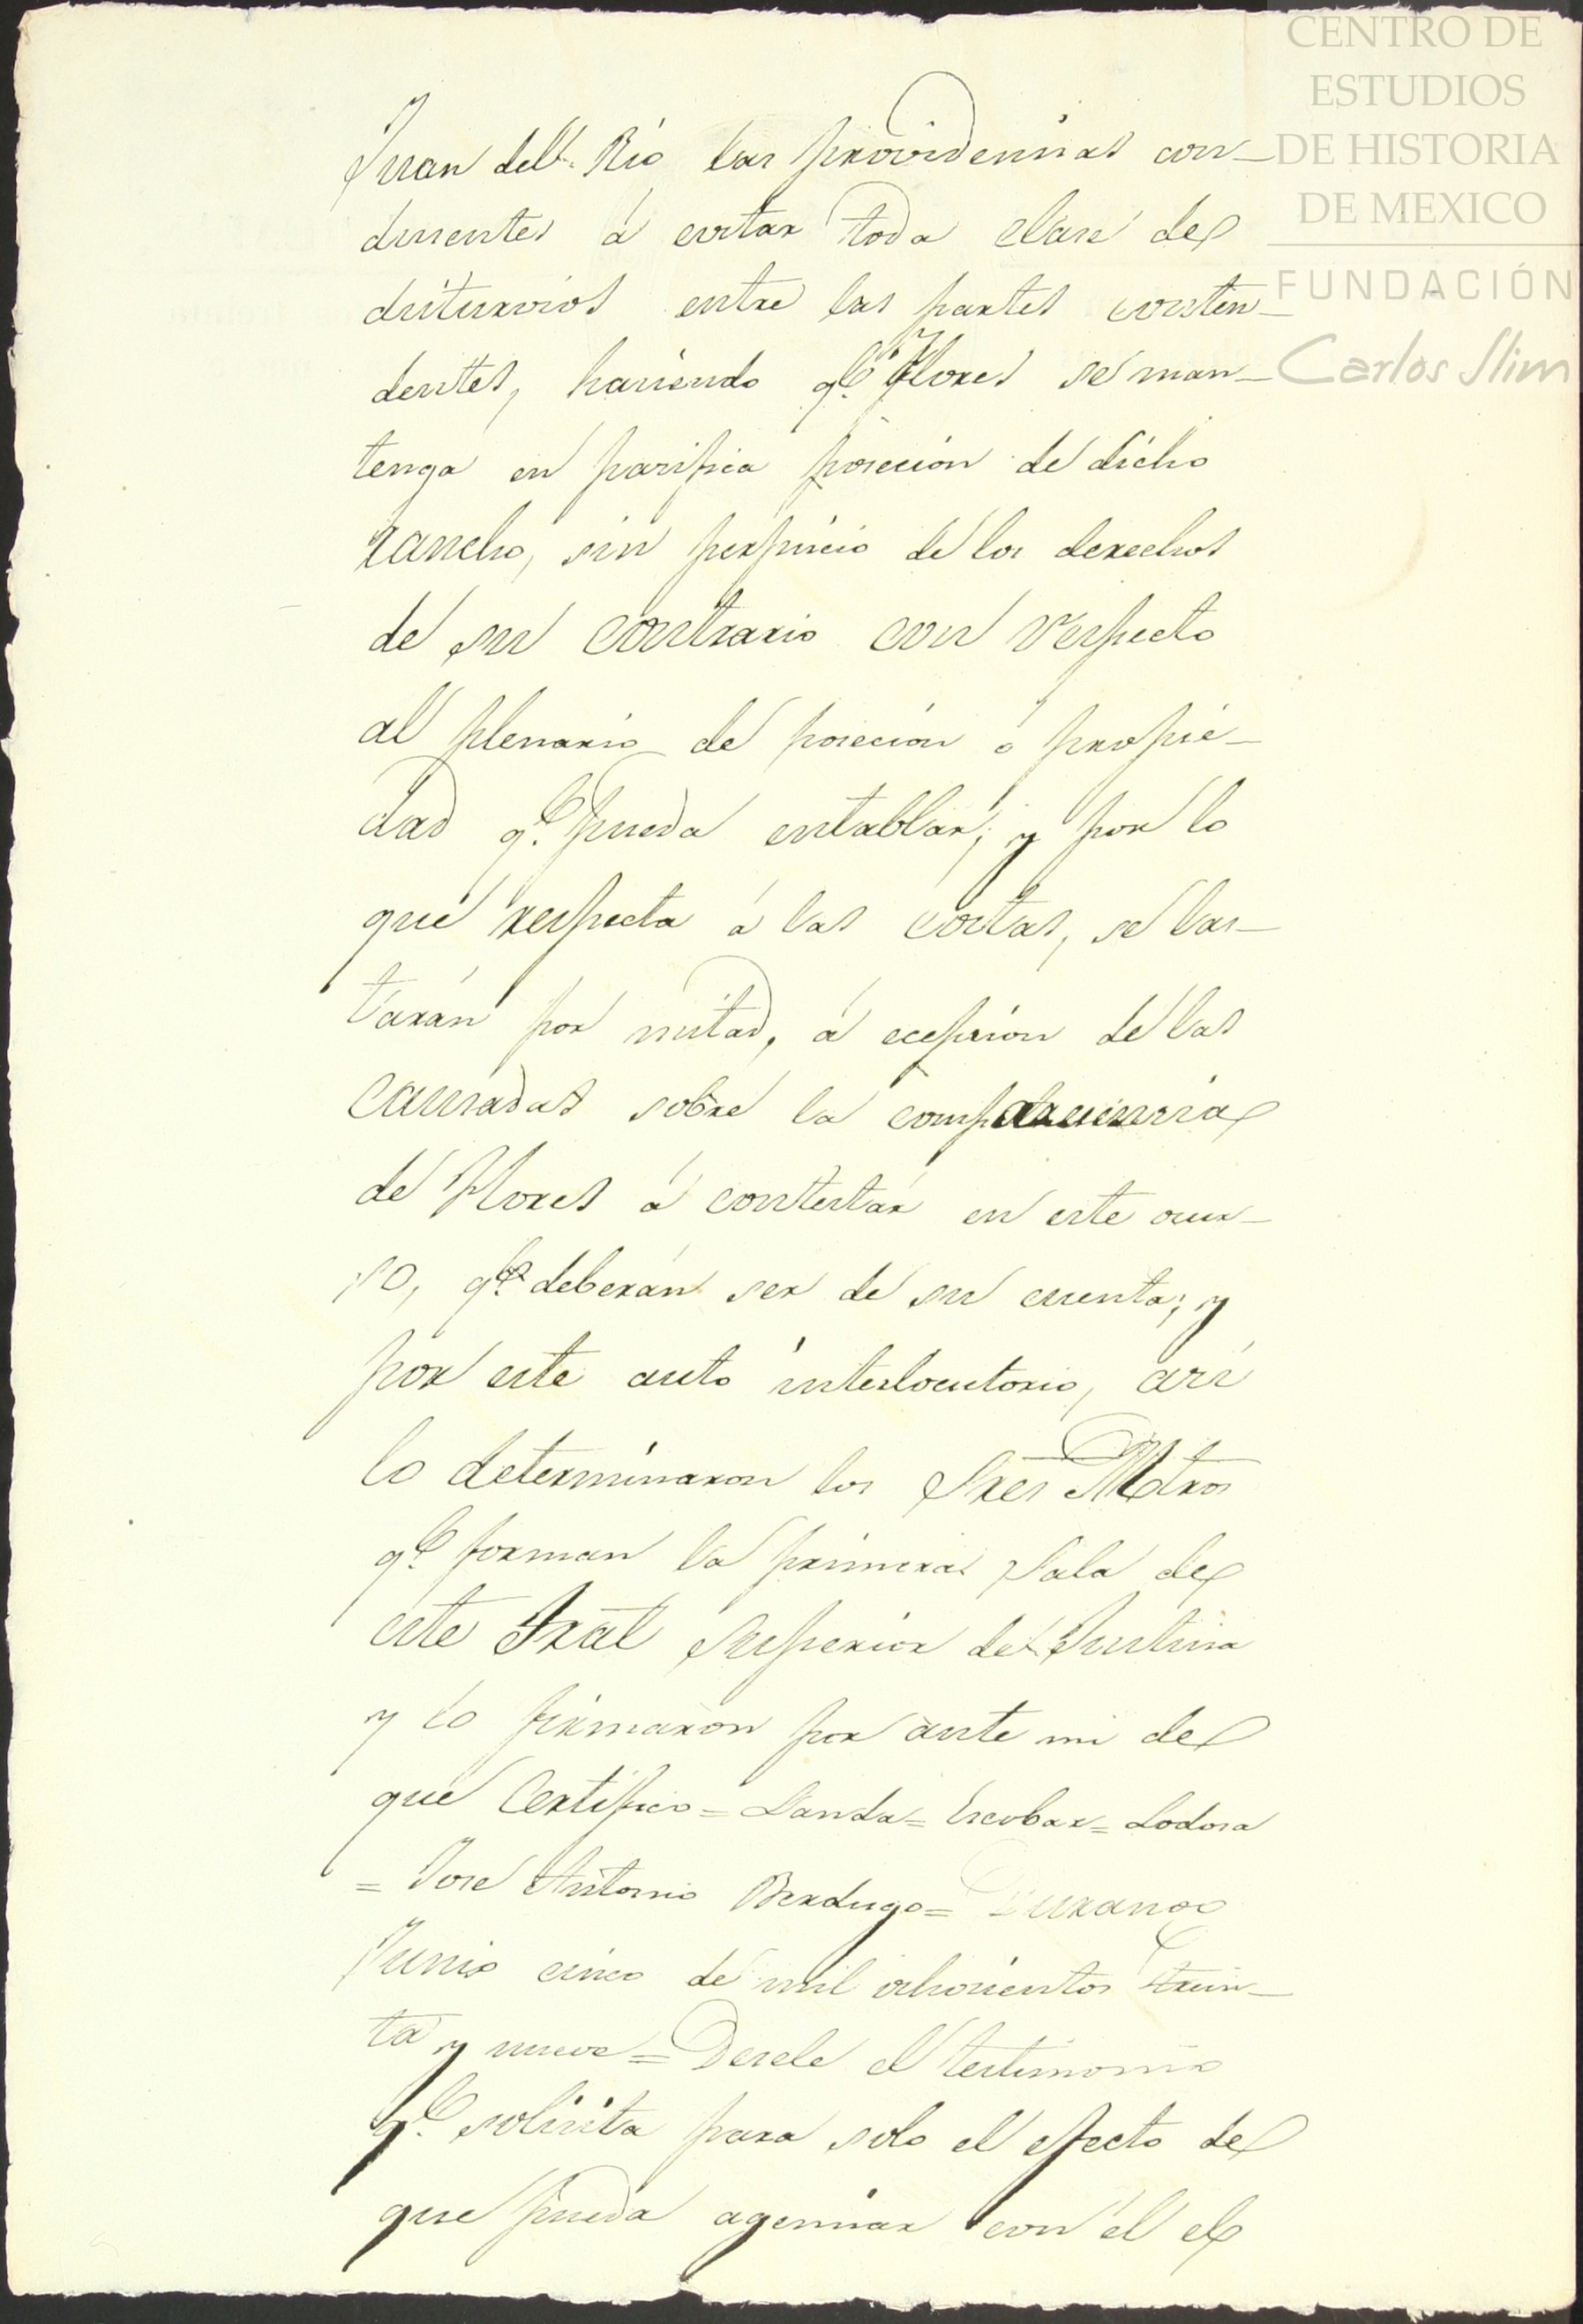 CENTRO DE
ESTUDIOS
DE HISTORIA
DE MEXICO
FUNDACIÓN
Carlos Slim
Juan del Rio las providencias con-
ducentes á evitar toda clase de
disturvios entre las partes conten-
dentes, haciendo q.e Flores se man-
tenga en pacifica poseción de dicho
rancho, sin perjuicio de los derechos
de su contrario con respecto
al plenario de poseción ó propie-
dad q.e pueda entablar; y por lo
que respecta á las costas, se las-
tarán por mitad, á ecepcion de las
causadas sobre la comparecencia
de Flores á contestar en este ocur-
so, q.e deberán ser de su cuenta; y
por este auto interlocutorio, asi
lo determinaron los Sres Mtros
q.e forman la primera Sala de
este Tral Superior de Justicia
y lo firmaron por ante mi de
que Certifico = Landa = Escobar = Lodosa
= José Antonio Berdugo = Durango
Junio cinco de mil ochocientos trein-
ta y nueve = Desele el testimonio
q.e solicita para solo el efecto de
que pueda agenciar con él el